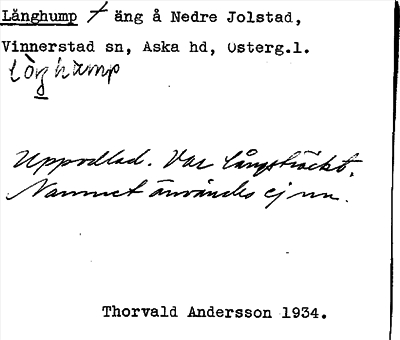 Långhump / äng å Nedre Jolstad,
Vinnerstad sn, Aska hd, Österg.l.
Uppodlad. Var långsträckt.
Namnet användes ej nu.
Thorvald Andersson 1934.